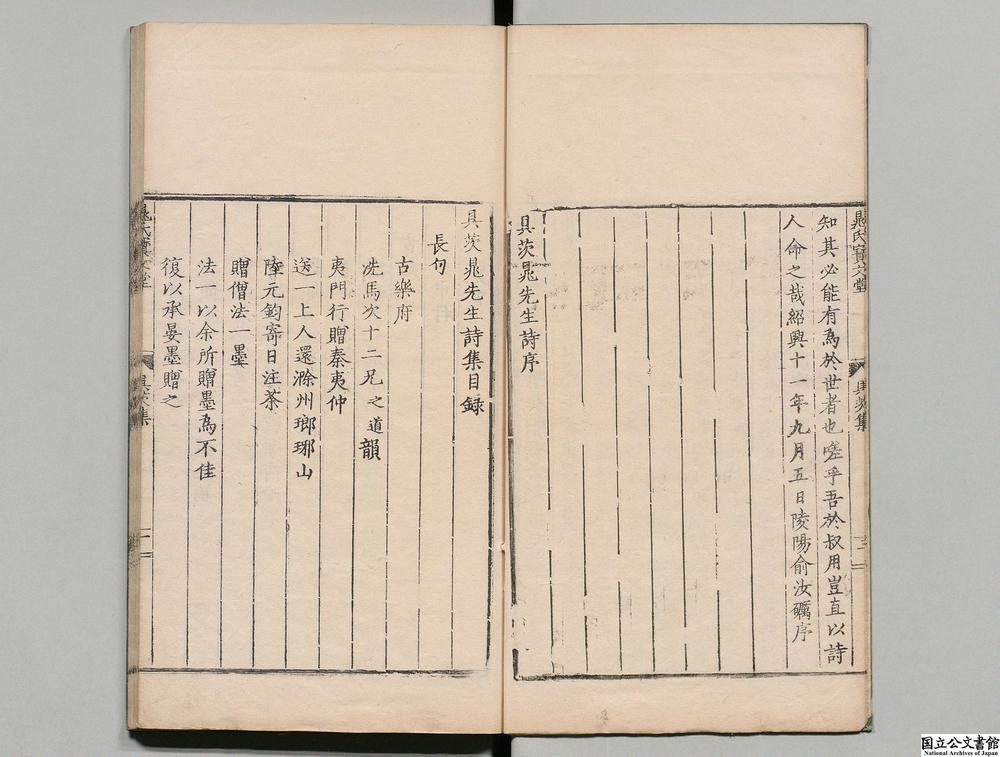 晁氏寶文堂
具茨集
三
知其必能有為於世者也嗟乎吾於叔用豈直以詩
人命之哉紹興十一年九月五日陵陽俞汝礪序
具茨晁先生詩序
具茨晁先生詩集目録
長句
古樂府
洗馬次十二兄之道韻
夷門行贈秦夷仲
送一上人還滁州瑯琊山
陸元鈞寄日注茶
贈僧法一墨
法一以余所贈墨為不佳
復以承晏墨贈之
晁氏寶文堂
具茨集
一
国立公文書館
National Archives of Japan